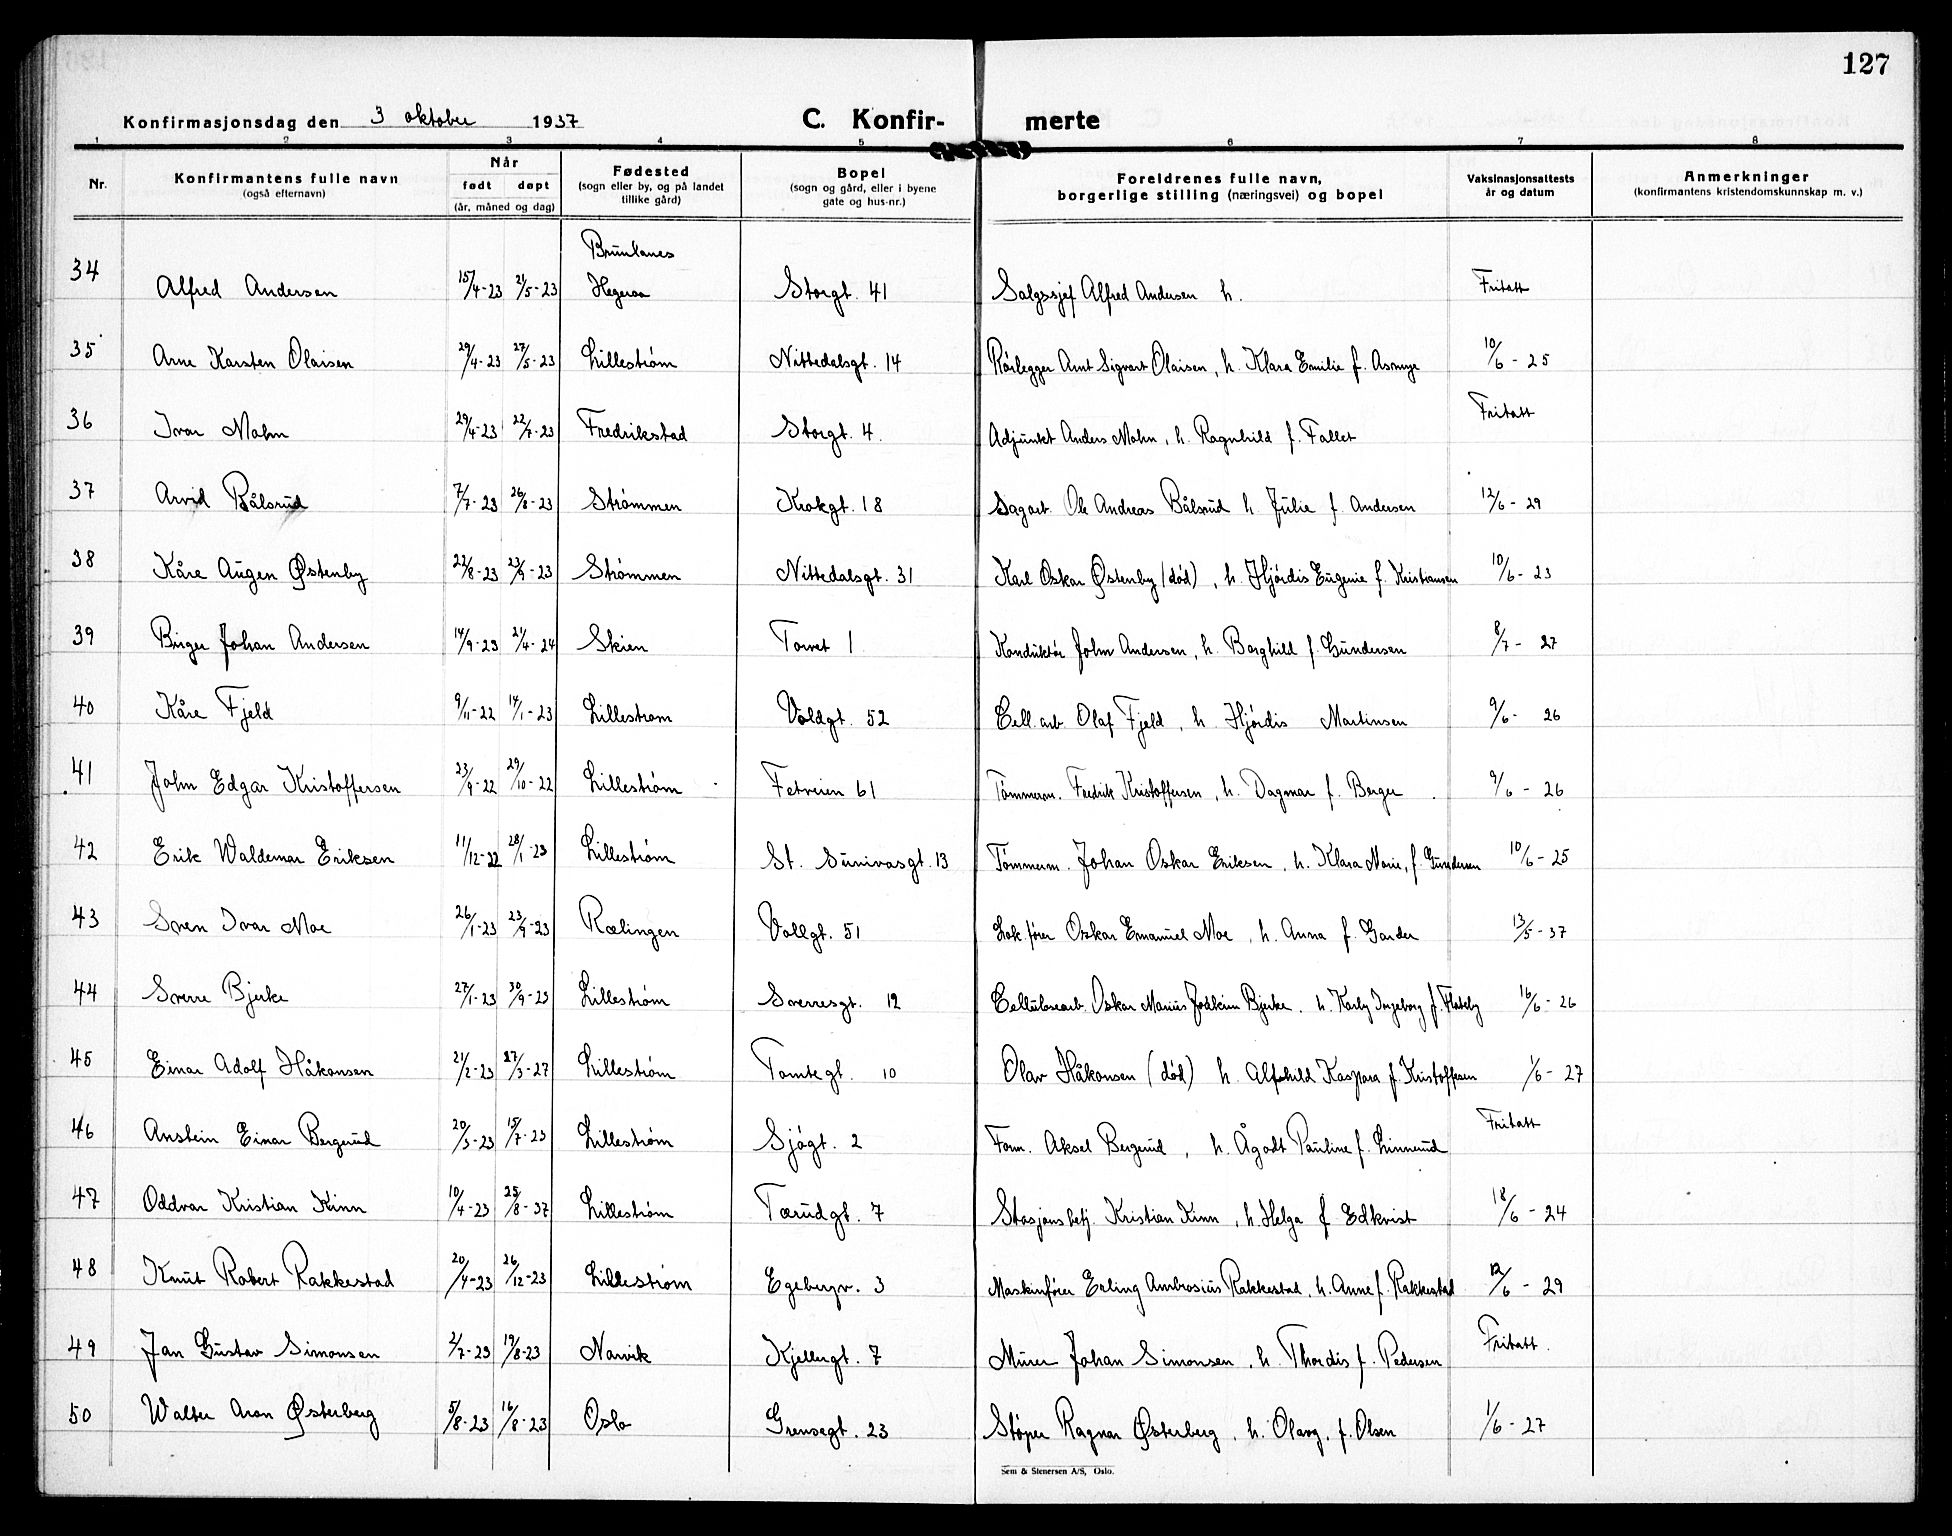 127
Konfirmasjonsdag den 3 oktober 1937 C. Konfir- merte
1 2 3 4 5 6 7 8
Nr. Konfirmantens fulle navn (også efternavn) Når født døpt (år, måned og dag) Fødested (sogn eller by, og på landet tillike gård) Bopel (sogn og gård, eller i byene gate og hus-nr.) Foreldrenes fulle navn, borgerlige stilling (næringsvei) og bopel Vaksinasjonsattests år og datum Anmerkninger (konfirmantens kristendomskunnskap m. v.)
Brunlanes
34 Alfred Andersen 15/4-23 21/5-23 Hegeraa Storgt. 41 Salgssjef Alfred Andersen h. Fritatt
35 Arne Karsten Olaisen 29/4-23 27/5-23 Lillestrøm Nittedalsgt. 14 Rørlegger Arnt Sigvart Olaisen, h. Klara Emilie f. Asmyr 10/6-25
36 Ivar Mohn 29/4-23 22/7-23 Fredrikstad Storgt. 4. Adjunkt Anders Mohn, h. Ragnhild f. Fallet Fritatt
37 Arvid Bålsrud 7/7-23 26/8-23 Strømmen Krokgt. 18 Sagarb. Ole Andreas Bålsrud h Julie f Andersen 12/6-29
38 Kåre Augen Østenby 22/8-23 23/9-23 Strømmen Nittedalsgt. 31 Karl Oskar Østenby (død), h. Hjørdis Eugenie f. Kristiansen 10/6-23
39 Birger Johan Andersen 14/9-23 21/4-24 Skien Torvet 1 Konduktør John Andersen, h. Borghild f. Gundersen 8/7-27
40 Kåre Fjeld 9/11-22 14/1-23 Lillestrøm Voldgt. 52 Cell.arb. Olaf Fjeld, h Hjørdis Martinsen 9/6-26
41 John Edgar Kristoffersen 23/9-22 29/10-22 Lillestrøm Fetveien 61 Tømmerm. Fredrik Kristoffersen, h. Dagmar f. Berger 9/6-26
42 Erik Waldemar Eriksen 11/12-22 28/1-23 Lillestrøm St. Sunivasgt. 13 Tømmerm. Johan Oskar Eriksen, h. Klara Marie, f. Gundersen 10/6-25
43 Sven Ivar Moe 26/1-23 23/9-23 Rælingen Vollgt. 51 Lok.fører Oskar Emanuel Moe, h. Anna f. Garder 13/5-37
44 Sverre Bjerke 27/1-23 30/9-23 Lillestrøm Sverresgt. 12 Cellulosearb. Oskar Marius Joakim Bjerke. h. Karly Ingeborg f. Flateby 16/6-26
45 Einar Adolf Håkonsen 21/2-23 27/3-27 Lillestrøm Tomtegt. 10 Olav Håkonsen (død) h. Alfhild Kaspara f. Kristoffersen 1/6-27
46 Anstein Einar Bergerud 20/3-23 15/7-23 Lillestrøm Sjøgt. 2 Form. Aksel Bergerud, h. Ågodt Pauline f. Linnerud Fritatt
47 Oddvar Kristian Kinn 10/4-23 25/8-37 Lillestrøm Tærudgt. 7 Stasjonsbetj. Kristian Kinn, h. Helga f Edkvist 18/6-24
48 Knut Robert Rakkestad 20/4-23 26/12-23 Lillestrøm Egebergv. 3 Maskinfører Erling Ambrosius Rakkestad, h. Anne f. Rakkestad 12/6-29
49 Jan Gustav Simonsen 2/7-23 19/8-23 Narvik Kjellergt. 7 Murer Johan Simonsen, h. Thordis f. Pedersen Fritatt.
50 Walter Aron Østerberg 5/8-23 16/8-23 Oslo Grensegt. 23 Støper Ragnar Østerberg, h. Olavg, f. Olsen 1/6-27
Sem & Stenersen A/S, Oslo.